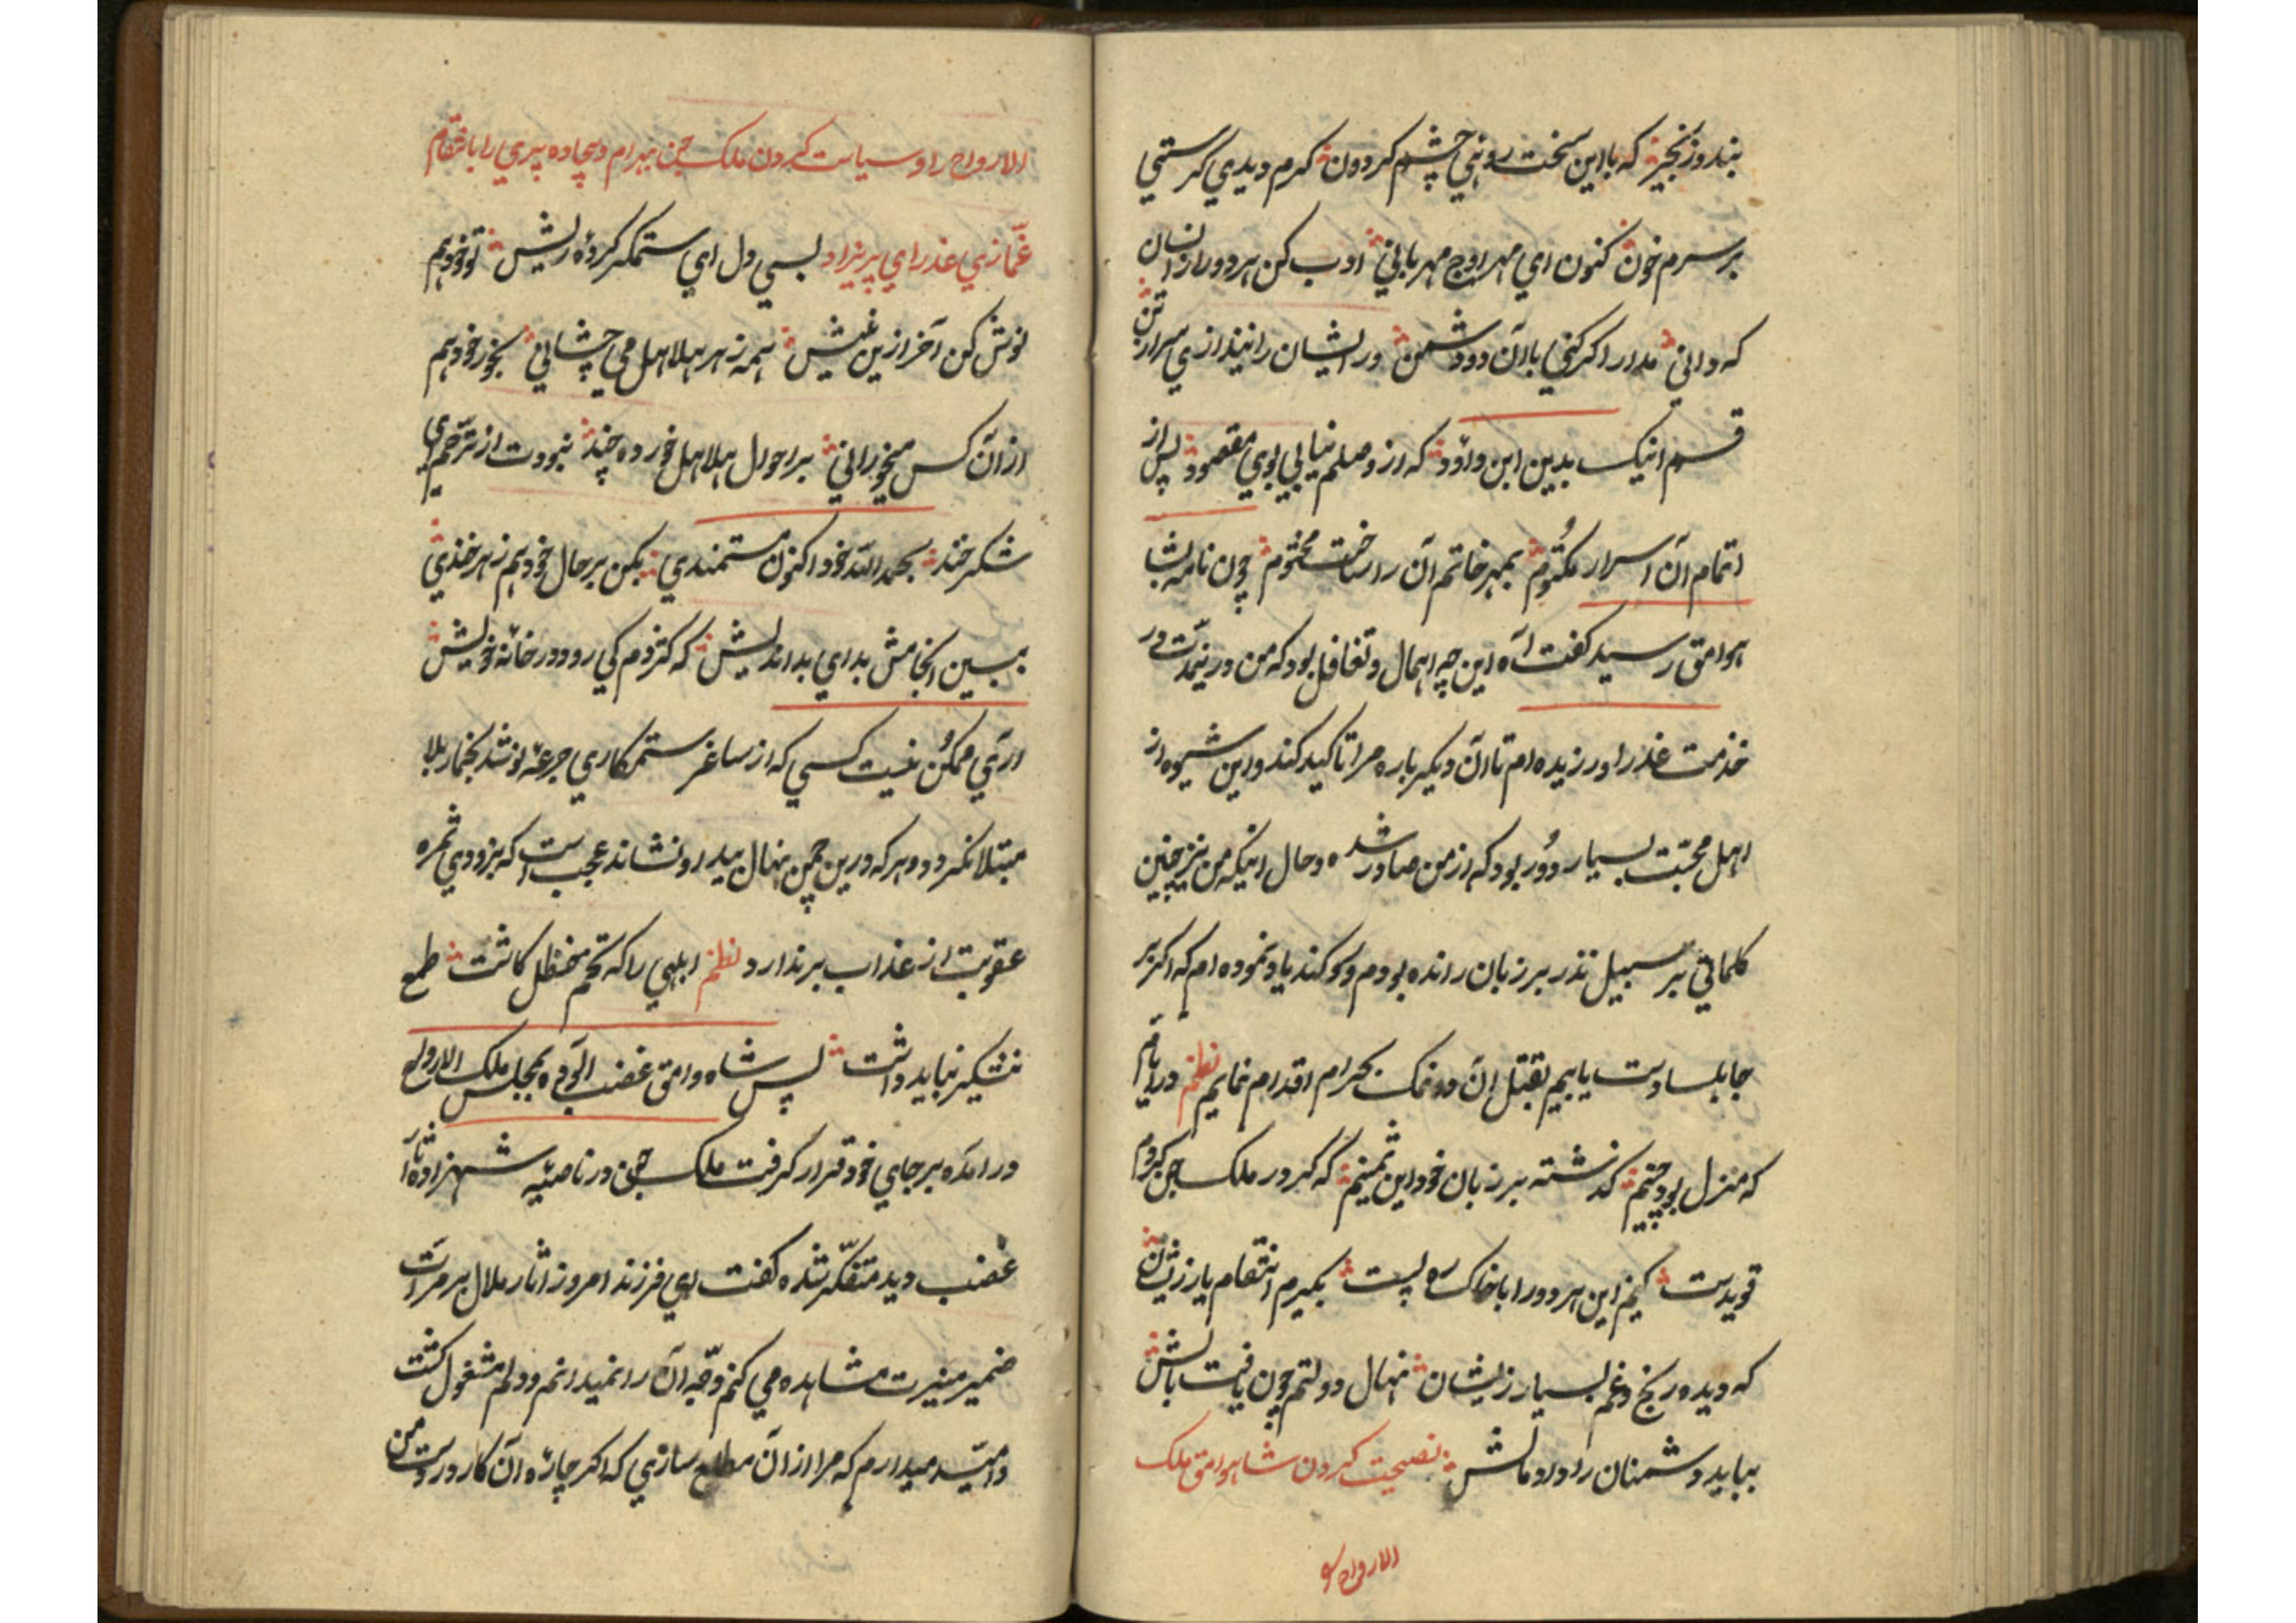 بند و زنجیر که با این سخت رویی چشم کردون کرم دیدی کرستی
بر سرم خون کنون ای مهر اوج مهربانی ادب کن هر دو را ز انسان
که دانی مدارا کر کنی با آن دو دشمن ور ایشان را نیندازی سر از تن
قسم اینک بدین ابن داوود که از وصلم نیابی بوی مقصود پس از
اتمام آن اسرار مکتوم بمهر خاتم آن را ساخت مختوم چون نامه بشا
هوامق رسید کفت آه این چه اهمال و تغافل بود که من درینمدت در
خدمت عذرا ورزیده ام تا آن دیکر باره مرا تاکید کند و این شیوه از
اهل محبت بسیار دور بود که از من صادر شده و حال اینکه من نیز چنین
کلماتی بر سبیل نذر بر زبان رانده بودم و سوکند یاد نموده ام که اکر بر
جابلسا دست یابیم بقتل آن دو نمک بحرام اقدام نمایم نظم در ایام
که منزل بود چینم کذشته بر زبان خود این ثمینم که کر در ملک جن کردم
قویدست کنم این هر دو را با خاک ره پست بکیرم انتقام یار زیشان
که دیده رنج و غم بسیار زیشان نهال دولتم چون یافت بالش
بباید دشمنان را داد مالش نصیحت کردن شاهوامق ملک
الارواح را و
الارواح را و سیاست کردن ملک جن بهرام و بیچاده پری را بانتقام
غمازی عذرای پریزاد بسی دل ای ستمکر کرده ریش تو خود هم
نوش کن آخر ازین نیش همه زهر هلاهل می چشانی بخور خود هم
از آن کس میخورانی بر احوال هلاهل خورده چند نبودت از ترحم می
شکر خند بحمد الله خود اکنون مستمندی بکن بر حال خود هم زهرخندی
ببین انجامش بد ای بد اندیش که کژدم کی رود در خانه خویش
آری ممکن نیست کسی که از ساغر ستمکاری جرعه نوشد بخمار بلا
مبتلا نکردد و هر که درین چمن نهال بیداد نشاند عجب است که بزودی ثمره
عقوبت از عذاب برندارد نظم ابلهی را که تخم حنظل کاشت طمع
نیشکر نباید داشت پس شاه وامق غضب آلوده بمجلس ملک الارواح
در آمده بر جای خود قرار کرفت ملک جن در ناصیه شهزاده آثار
غضب دید متفکر شده کفت ای فرزند امروز آثار ملال بر مرآت
ضمیر منیرت مشاهده می کنم وجه آن را نمیدانم و دلم مشغول کشت
و امید میدارم که مرا از آن مطلع سازی که اکر چاره آن کار در دست من